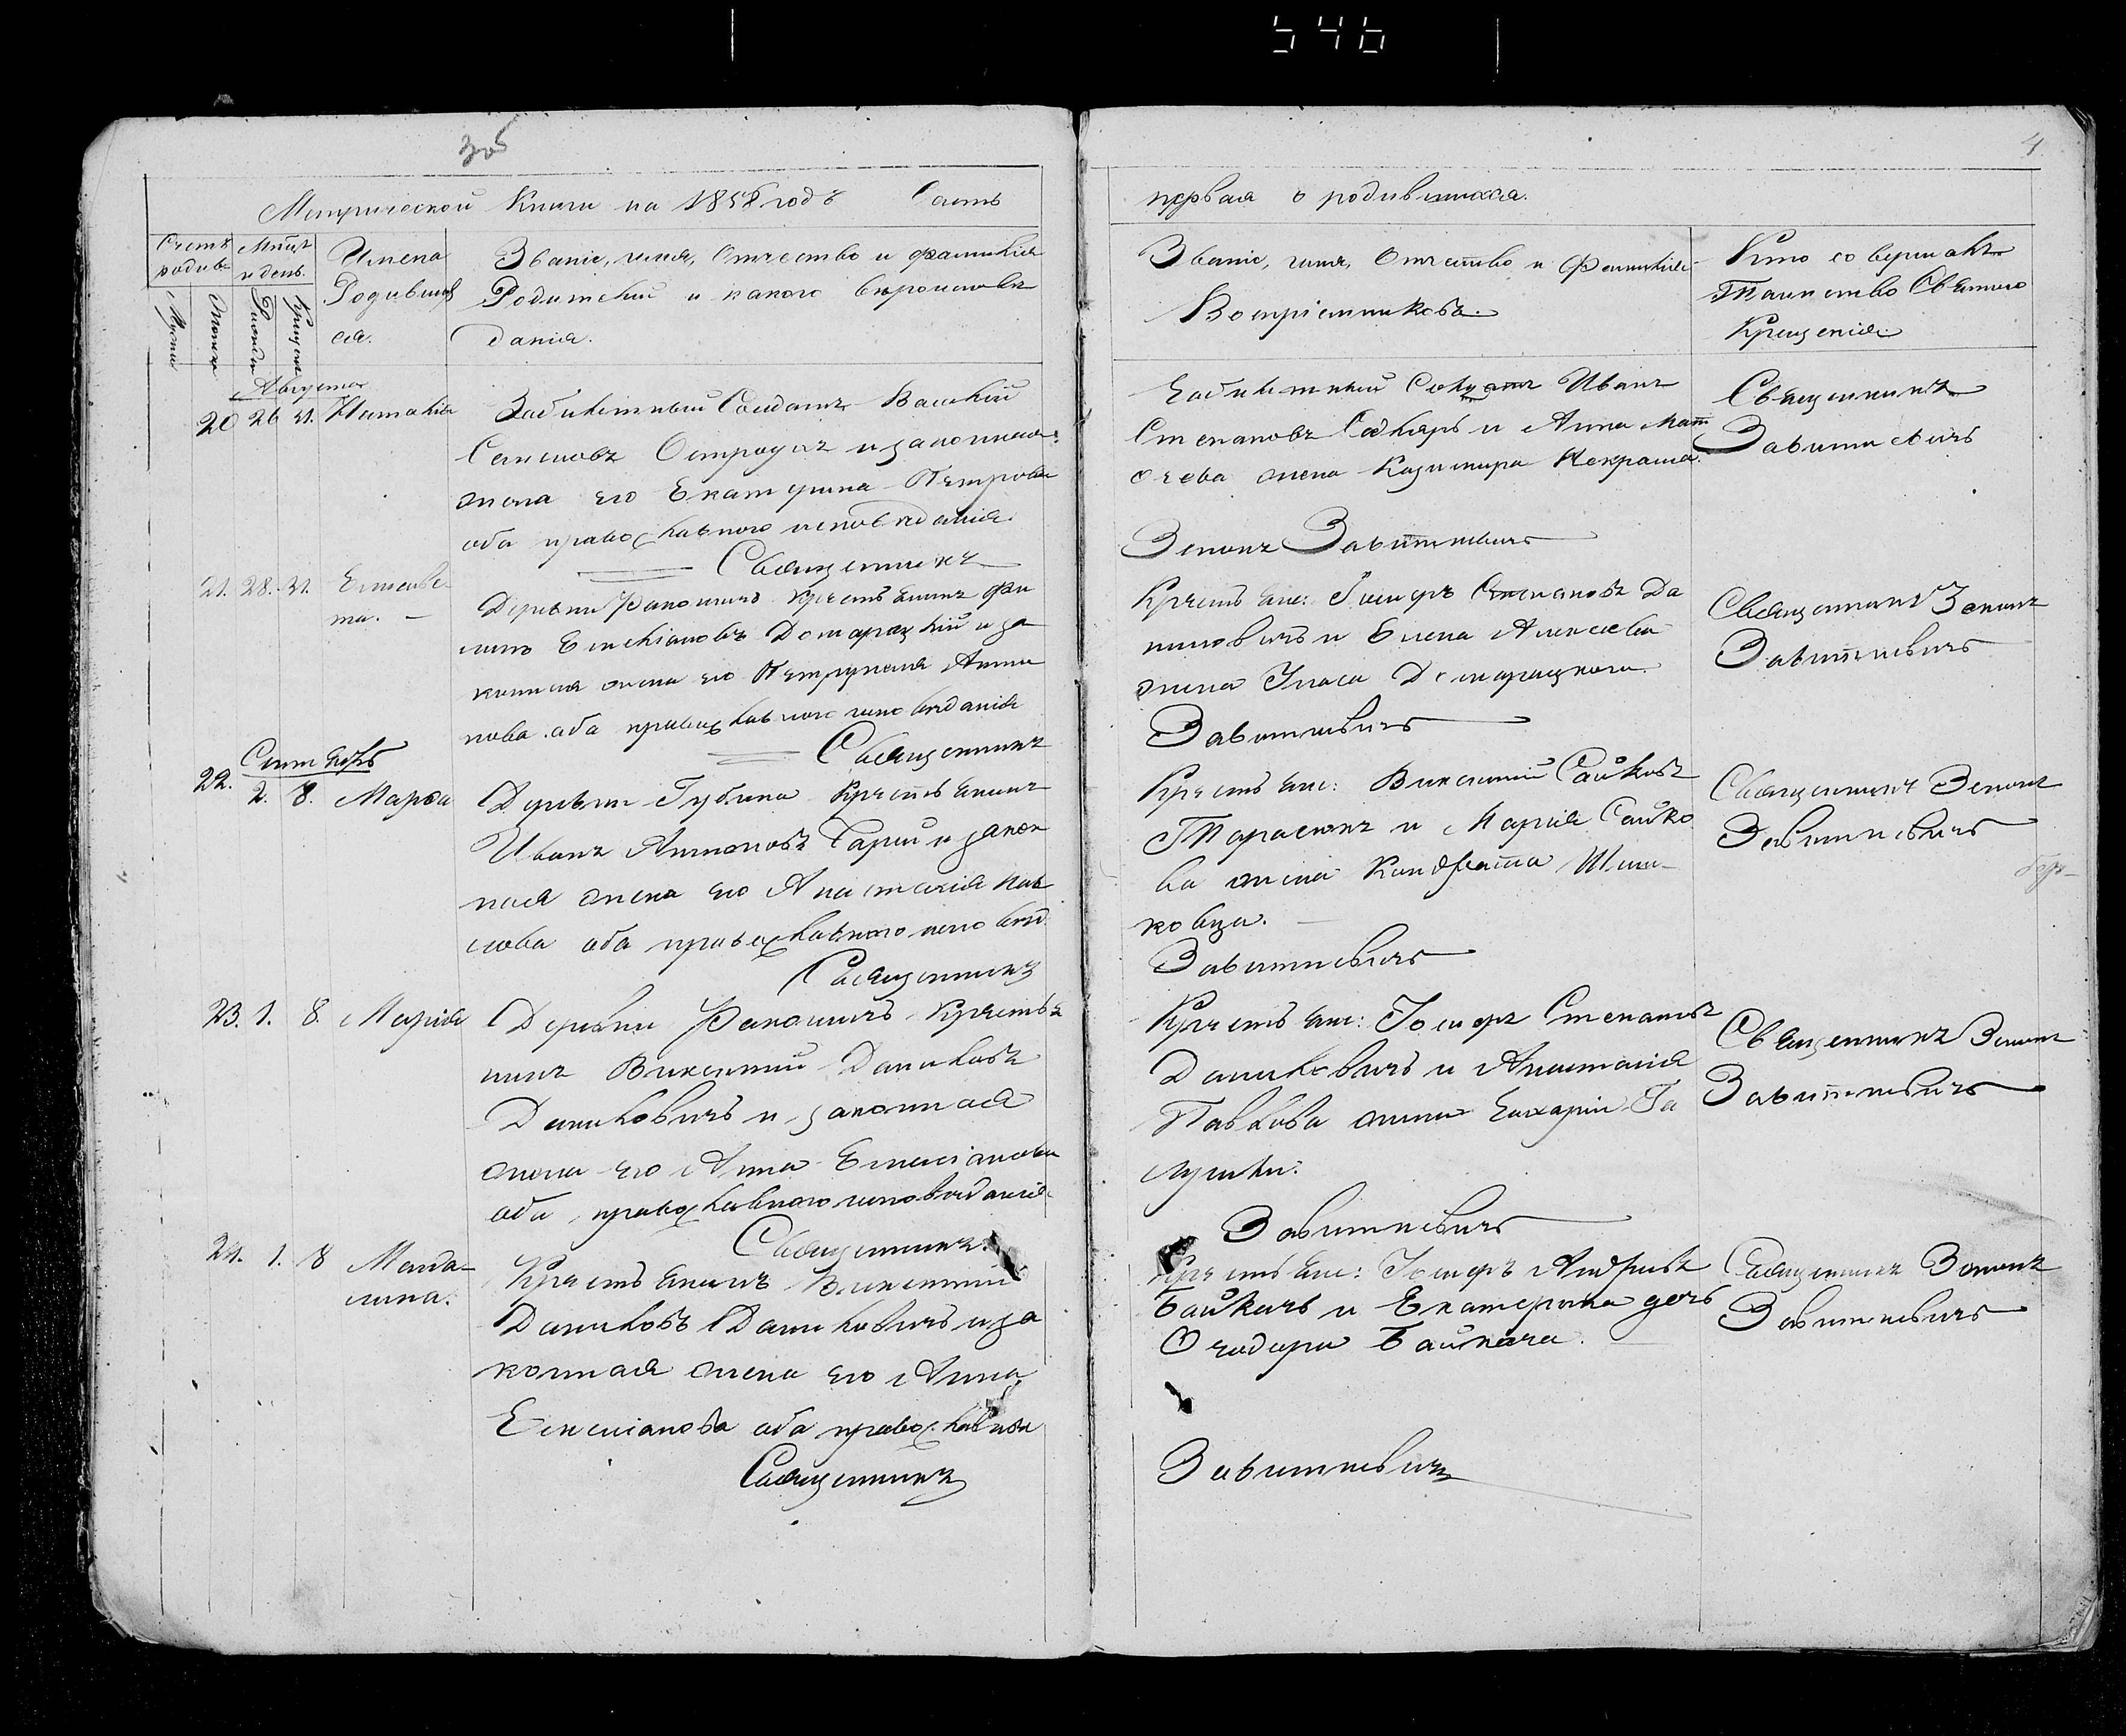 546
3об
4
Метрической Книги на 1858 годъ Часть
первая о родившихся.
Счетъ родив
Мѣсяцъ и день.
Имена
Родивших
ся.
Званіе, имя, Отчество и фамилія
Родителей и какого вѣроисповѣ
данія.
Званіе, имя, Отчество и Фамилія
Воспріемниковъ.
Кто совершалъ
Таинство Святаго
Крещенія.
Августа
20 26 31. Наталія
Забилетный Солдатъ Василій
Семеновъ и законная
жена его Екатерина Петрова
оба православнаго исповѣданія.
Священникъ
Забилетный Солдатъ Иванъ
Степановъ и Анна Мат
ѳеева жена Казимира Некраша.
Зенонъ Завитневичъ
Священникъ
Завитневичъ
21. 28. 31. Елисаве
та.
Деревни Крестьянинъ Фи
липъ Емеліановъ Домарацкій и за
конная жена его Петрунеля Анто
нова оба православнаго исповѣданія
Священникъ
Крестьяне: Іосифъ Степановъ Да
ниловичъ и Елена Алексѣева
жена Домарацкого.
Завитневичъ
Священникъ Зенонъ
Завитневичъ
Сентябрь
22. 2. 8. Марѳа
Деревни Крестьянинъ
Иванъ Антоновъ и закон
ная жена его Анастасія Пав
лова оба православнаго исповѣд.
Священникъ
Крестьяне: Викентій
Тарасюкъ и Марія
ва жена Кондрата
ковца.
Завитневичъ
Священникъ Зенонъ
Завитневичъ
23. 1. 8. Марія
Деревни Крестья
нинъ Викентій Даниловъ
Даниловичъ и законная
жена его Анна Емеліанова
оба православнаго исповѣданія.
Священникъ
Крестьяне: Іосифъ Степановъ
Даниловичъ и Анастасія
Павлова жена Захаріи Га
лушки.
Завитневичъ
Священникъ Зенонъ
Завитневичъ
24. 1. 8 Магда-
лина.
Крестьянинъ Викентій
Даниловъ Даниловичъ и за
конная жена его Анна
Емеліанова оба православны
Священникъ
Крестьяне: Іосифъ Андреевъ
Байкачъ и Екатерина дочь
Ѳеодора Байкача.
Завитневичъ
Священникъ Зенонъ
Завитневичъ